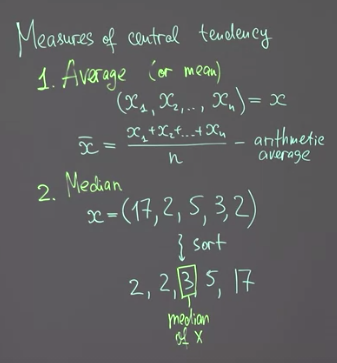 Measures of central tendency
1. Average (or mean)
(x₁, x₂, .., xₙ) = x
x̄ = (x₁+x₂+...+xₙ)/n - arithmetic average
2. Median
x = (17, 2, 5, 3, 2)
sort
2, 2, 3 5, 17
median
of x